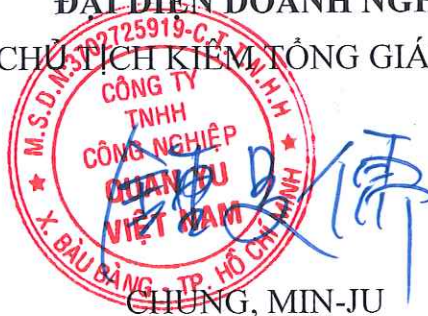 ĐẠI DIỆN DOANH NGH
CHỦ TỊCH KIÊM TỔNG GIÁ
M.S.D.N:3702725919-C.T.T.N.H.H
CÔNG TY
TNHH
CÔNG NGHIỆP
QUAN YU
VIỆT NAM
X. BÀU BÀNG - TP. HỒ CHÍ MINH
CHUNG, MIN-JU